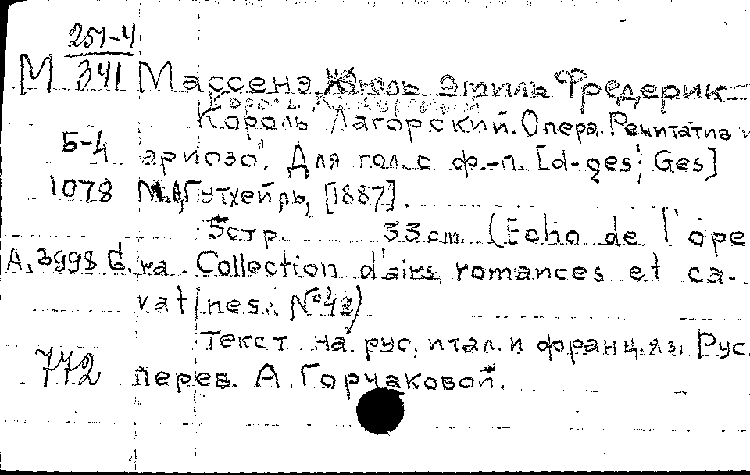 251-4
М 341 Массенэ, Жюль Эмиль Фредерик
Король Лагорский. Опера. Речитатив и
5-4 ариозо. Для гол. с ф.-п. [d-ges; Ges]
1078 М., Гутхейль, [1887].
5 стр. 33 cm (Echo de l'ope
A. 3998 G. ra. Collection d'airs, romances et ca-
vatines. №42)
Текст на рус., итал. и франц. яз. Рус.
772 перев. А. Горчаковой.